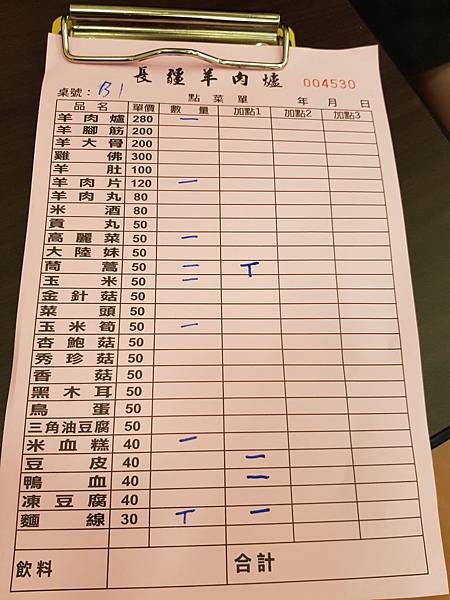 長疆羊肉爐 004530
桌號：B1 點菜單 年 月 日
品名 單價 數量 加點1 加點2 加點3
羊肉爐 280 一
羊腳筋 200
羊大骨 200
雞佛 300
羊肚 100
羊肉片 120 一
羊肉丸 80
米酒 80
貢丸 50
高麗菜 50 一
大陸妹 50
茼蒿 50 一 T
玉米 50 一
金針菇 50
菜頭 50
玉米筍 50 一
杏鮑菇 50
秀珍菇 50
香菇 50
黑木耳 50
鳥蛋 50
三角油豆腐 50
米血糕 40 一
豆皮 40 一
鴨血 40 一
凍豆腐 40
麵線 30 T 一
飲料 合計